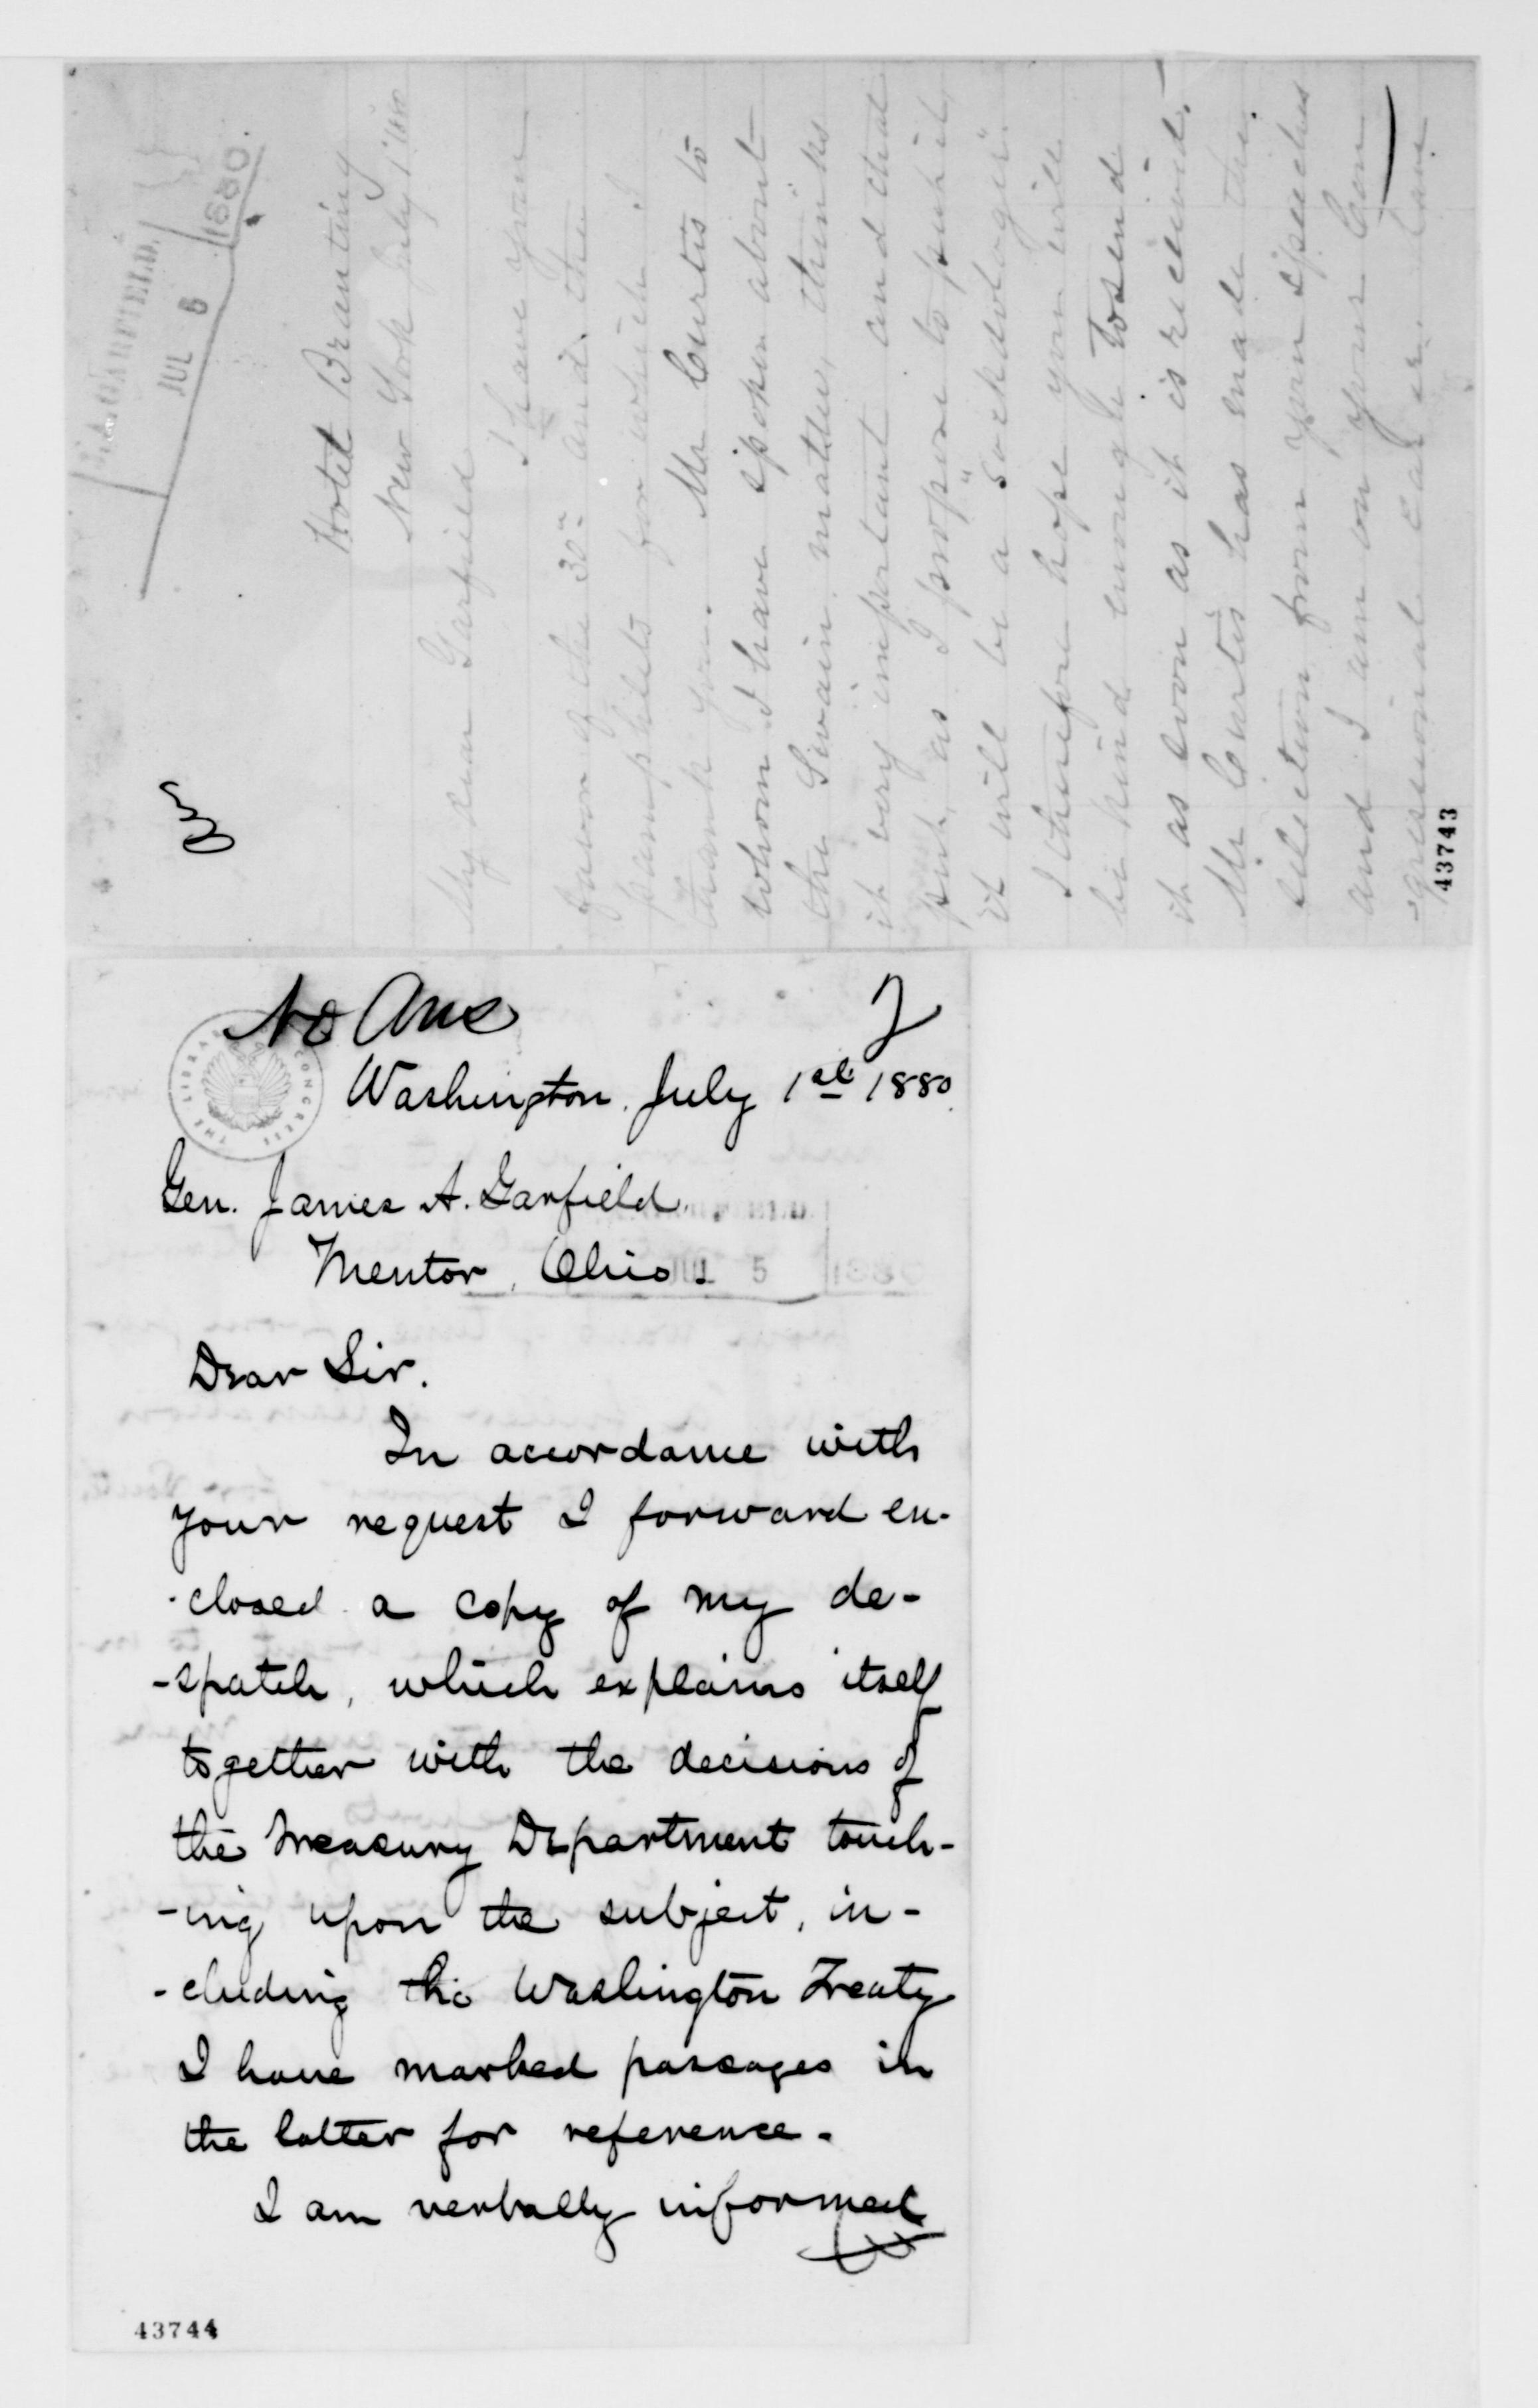 J. A. GARFIELD.
JUL 6 1880.
Hotel Branting
New York July 1" 1880
My dear Garfield
I have your
favor of the 30" and the
pamphlets for which I
thank you. Mr Curtis to
whom I have spoken about
the Swain matter, thinks
it very important and that
put, as I propose to put it,
it will be a "sockdologer".
I therefore hope you will
be kind enough to send
it as soon as it is received.
Mr Curtis has made the
selection from your speeches
and I am on your Con
-gressional career.
43743
No Ans
Washington. July 1st 1880.
THE LIBRARY OF CONGRESS
Gen. James A. Garfield.
Mentor, Ohio.
JUL 5 1880
Dear Sir.
In accordance with
your request I forward en-
-closed a copy of my de-
-spatch, which explains itself
together with the decisions of
the Treasury Department touch-
-ing upon the subject, in-
-cluding the Washington Treaty
I have marked passages in
the latter for reference.
I am verbally informed
43744